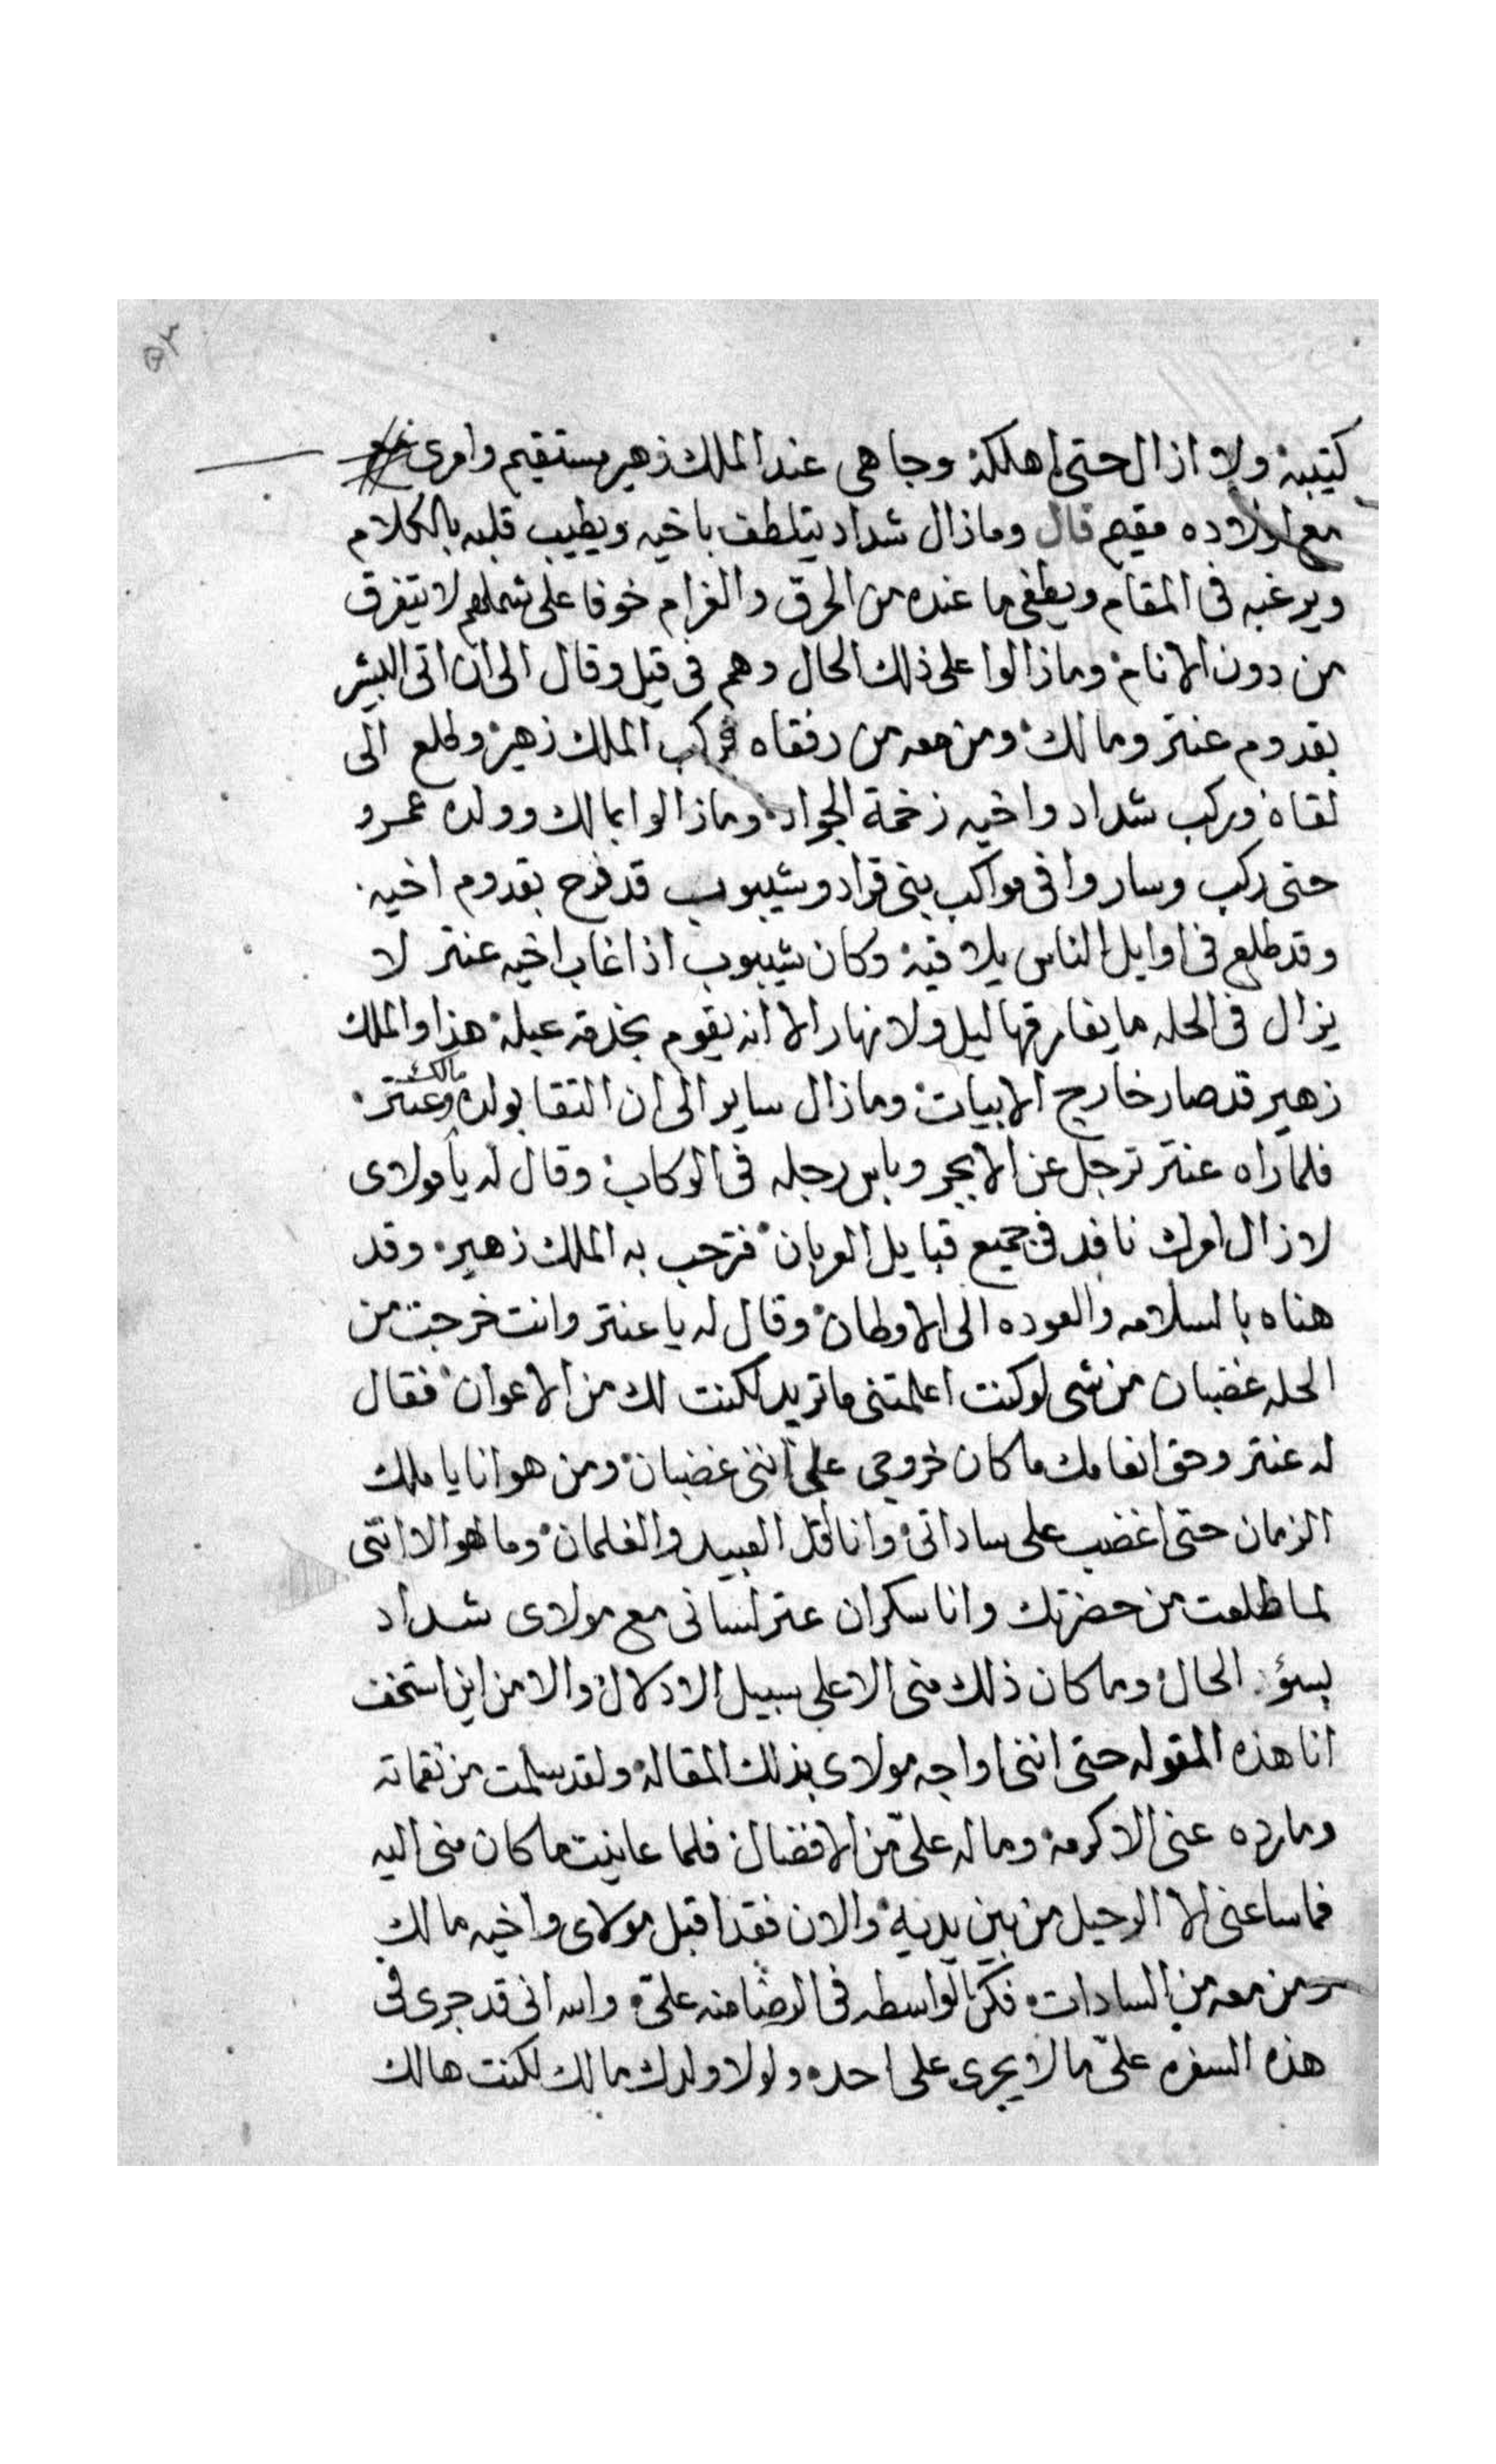 ٥٣
كتيبة ولا ازال حتى اهلكه وجاهى عند الملك زهير مستقيم وامرى
مع اولاده مقيم قال ومازال شداد يتلطف باخيه ويطيب قلبه بالكلام
ويرغبه فى المقام ويطفى ما عنده من الحرق والغرام خوفا على شملهم لا يتفرق
من دون الانام ومازالوا على ذلك الحال وهم فى قيل وقال الى ان اتى البشير
بقدوم عنتر ومالك ومن معه من رفقاه فركب الملك زهير وطلع الى
لقاه وركب شداد واخيه زخمة الجواد ومازالوا بمالك وولده عمرو
حتى ركب وساروا فى مواكب بنى قراد وشيبوب قد فرح بقدوم اخيه
وقد طلع فى اوايل الناس يلاقيه وكان شيبوب اذا غاب اخيه عنتر لا
يزال فى الحله ما يفارقها ليل ولا نهار الا انه يقوم بخدمة عبلة هذا والملك
زهير قد صار خارج الابيات ومازال ساير الى ان التقا بولده مالك وعنتر
فلما راه عنتر ترجل عن الابجر وباس رجله فى الركاب وقال له يا مولاى
لازال امرك نافد فى جميع قبايل العربان فترحب به الملك زهير وقد
هناه بالسلامه والعوده الى الاوطان وقال له يا عنتر وانت خرجت من
الحله غضبان من شى لو كنت اعلمتنى ما تريد لكنت لك من الاعوان فقال
له عنتر وحق انعامك ما كان خروجى على اننى غضبان ومن هو انا يا ملك
الزمان حتى اغضب على ساداتى وانا اقل العبيد والغلمان وما هو الا اننى
لما طلعت من حضرتك وانا سكران عتر لسانى مع مولاى شداد
بسؤ الحال وما كان ذلك منى الا على سبيل الادلال والا من اين استخف
انا هذه المقوله حتى اننى اواجه مولاى بذلك المقاله ولقد سلمت من نقماته
وما رده عنى الا كرمه وماله علىّ من الافضال فلما عاينت ما كان منى اليه
فما ساعنى الا الرحيل من بين يديه والان فقد اقبل مولاى واخيه مالك
ومن معه من السادات فكن الواسطه فى الرضا منه علىّ والله انى قد جرى فى
هذه السفره علىّ ما لا يجرى على احد ولولا ولدك مالك لكنت هالك